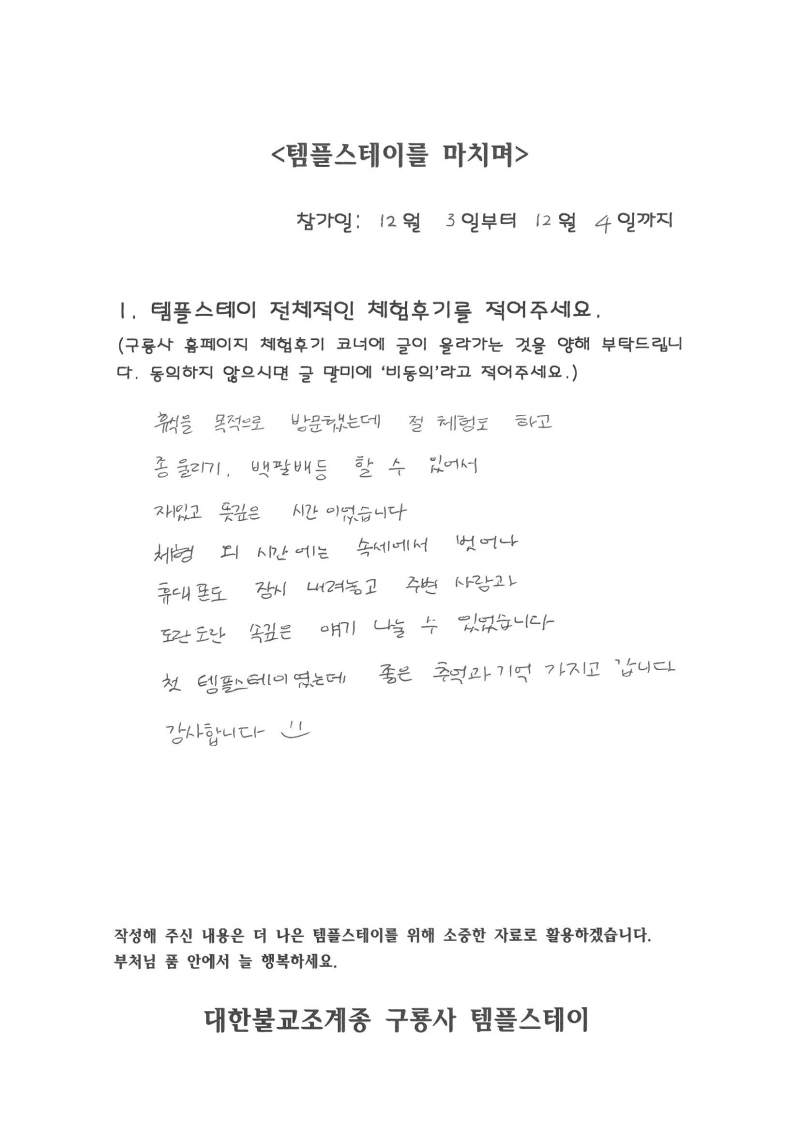 <템플스테이를 마치며>
참가일: 12월 3일부터 12월 4일까지
1. 템플스테이 전체적인 체험후기를 적어주세요.
(구룡사 홈페이지 체험후기 코너에 글이 올라가는 것을 양해 부탁드립니
다. 동의하지 않으시면 글 말미에 '비동의'라고 적어주세요.)
휴식을 목적으로 방문했는데 절 체험도 하고
종 울리기, 백팔배등 할 수 있어서
재밌고 뜻깊은 시간이었습니다
체험 외 시간에는 속세에서 벗어나
휴대폰도 잠시 내려놓고 주변 사람과
도란도란 속깊은 얘기 나눌 수 있었습니다
첫 템플스테이였는데 좋은 추억과 기억 가지고 갑니다
감사합니다
작성해 주신 내용은 더 나은 템플스테이를 위해 소중한 자료로 활용하겠습니다.
부처님 품 안에서 늘 행복하세요.
대한불교조계종 구룡사 템플스테이